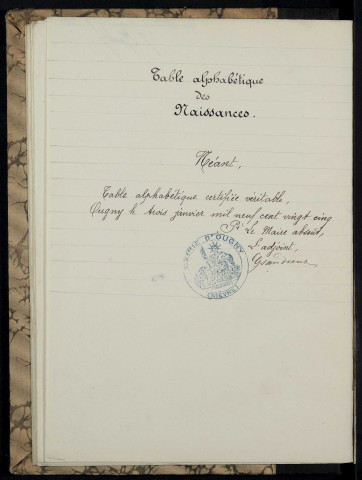 Table alphabétique
des
Naissances.
Néant.
Table alphabétique certifiée véritable,
Ougny le trois janvier mil neuf cent vingt cinq
Pr Le Maire absent,
L'adjoint,
MAIRIE D'OUGNY
(NIÈVRE)